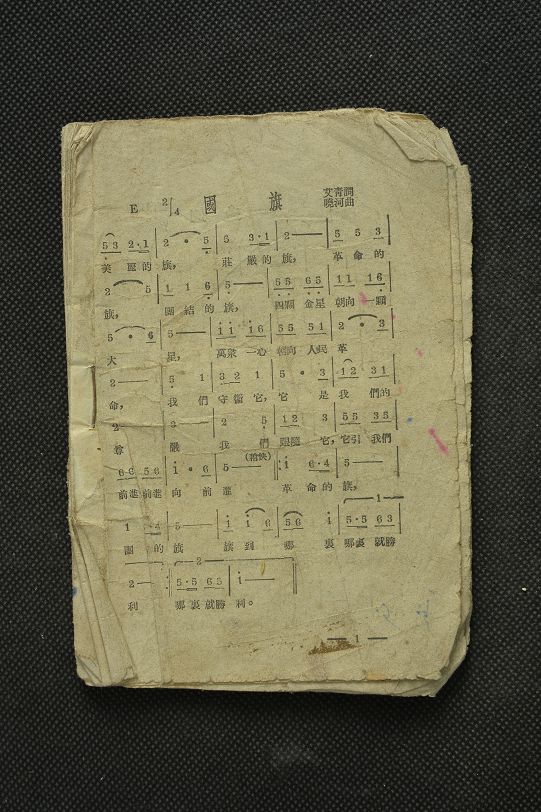 E 2/4 國旗 艾青詞
曉河曲
5 3 2·1 | 2 · 5 | 5 3·1 | 2 — | 5 5 3
美麗的旗, 莊嚴的旗, 革命的
2 5 | 1 1 6 | 5 — | 5 5 6 5 | 1 1 1 6
旗, 團結的旗, 四顆金星 朝向一顆
5 · 6 | 5 — | 1 1 1 6 | 5 5 5 1 | 2 · 3
大星, 萬眾一心 朝向人民革
2 — | 5 1 | 3 2 1 | 5 · 3 | 1 2 3 1
命, 我們守衛它, 它是我們的
2 3 | 2 5 | 1 2 3 | 5 5 3 5
尊嚴 我們跟隨它, 它引我們
6 6 5 6 | 1 · 6 | 5 — (稍快) | 1 6·4 | 5 —
前進前進向前進 革命的旗,
1 ·4 | 5 — | 1 1 6 | 5 6 1 | 5·5 6 3 1
團的旗 旗到哪裏 哪裏就勝
2 — 5·5 6 5 | 1 — 2
利 哪裏就勝利。
— 1 —